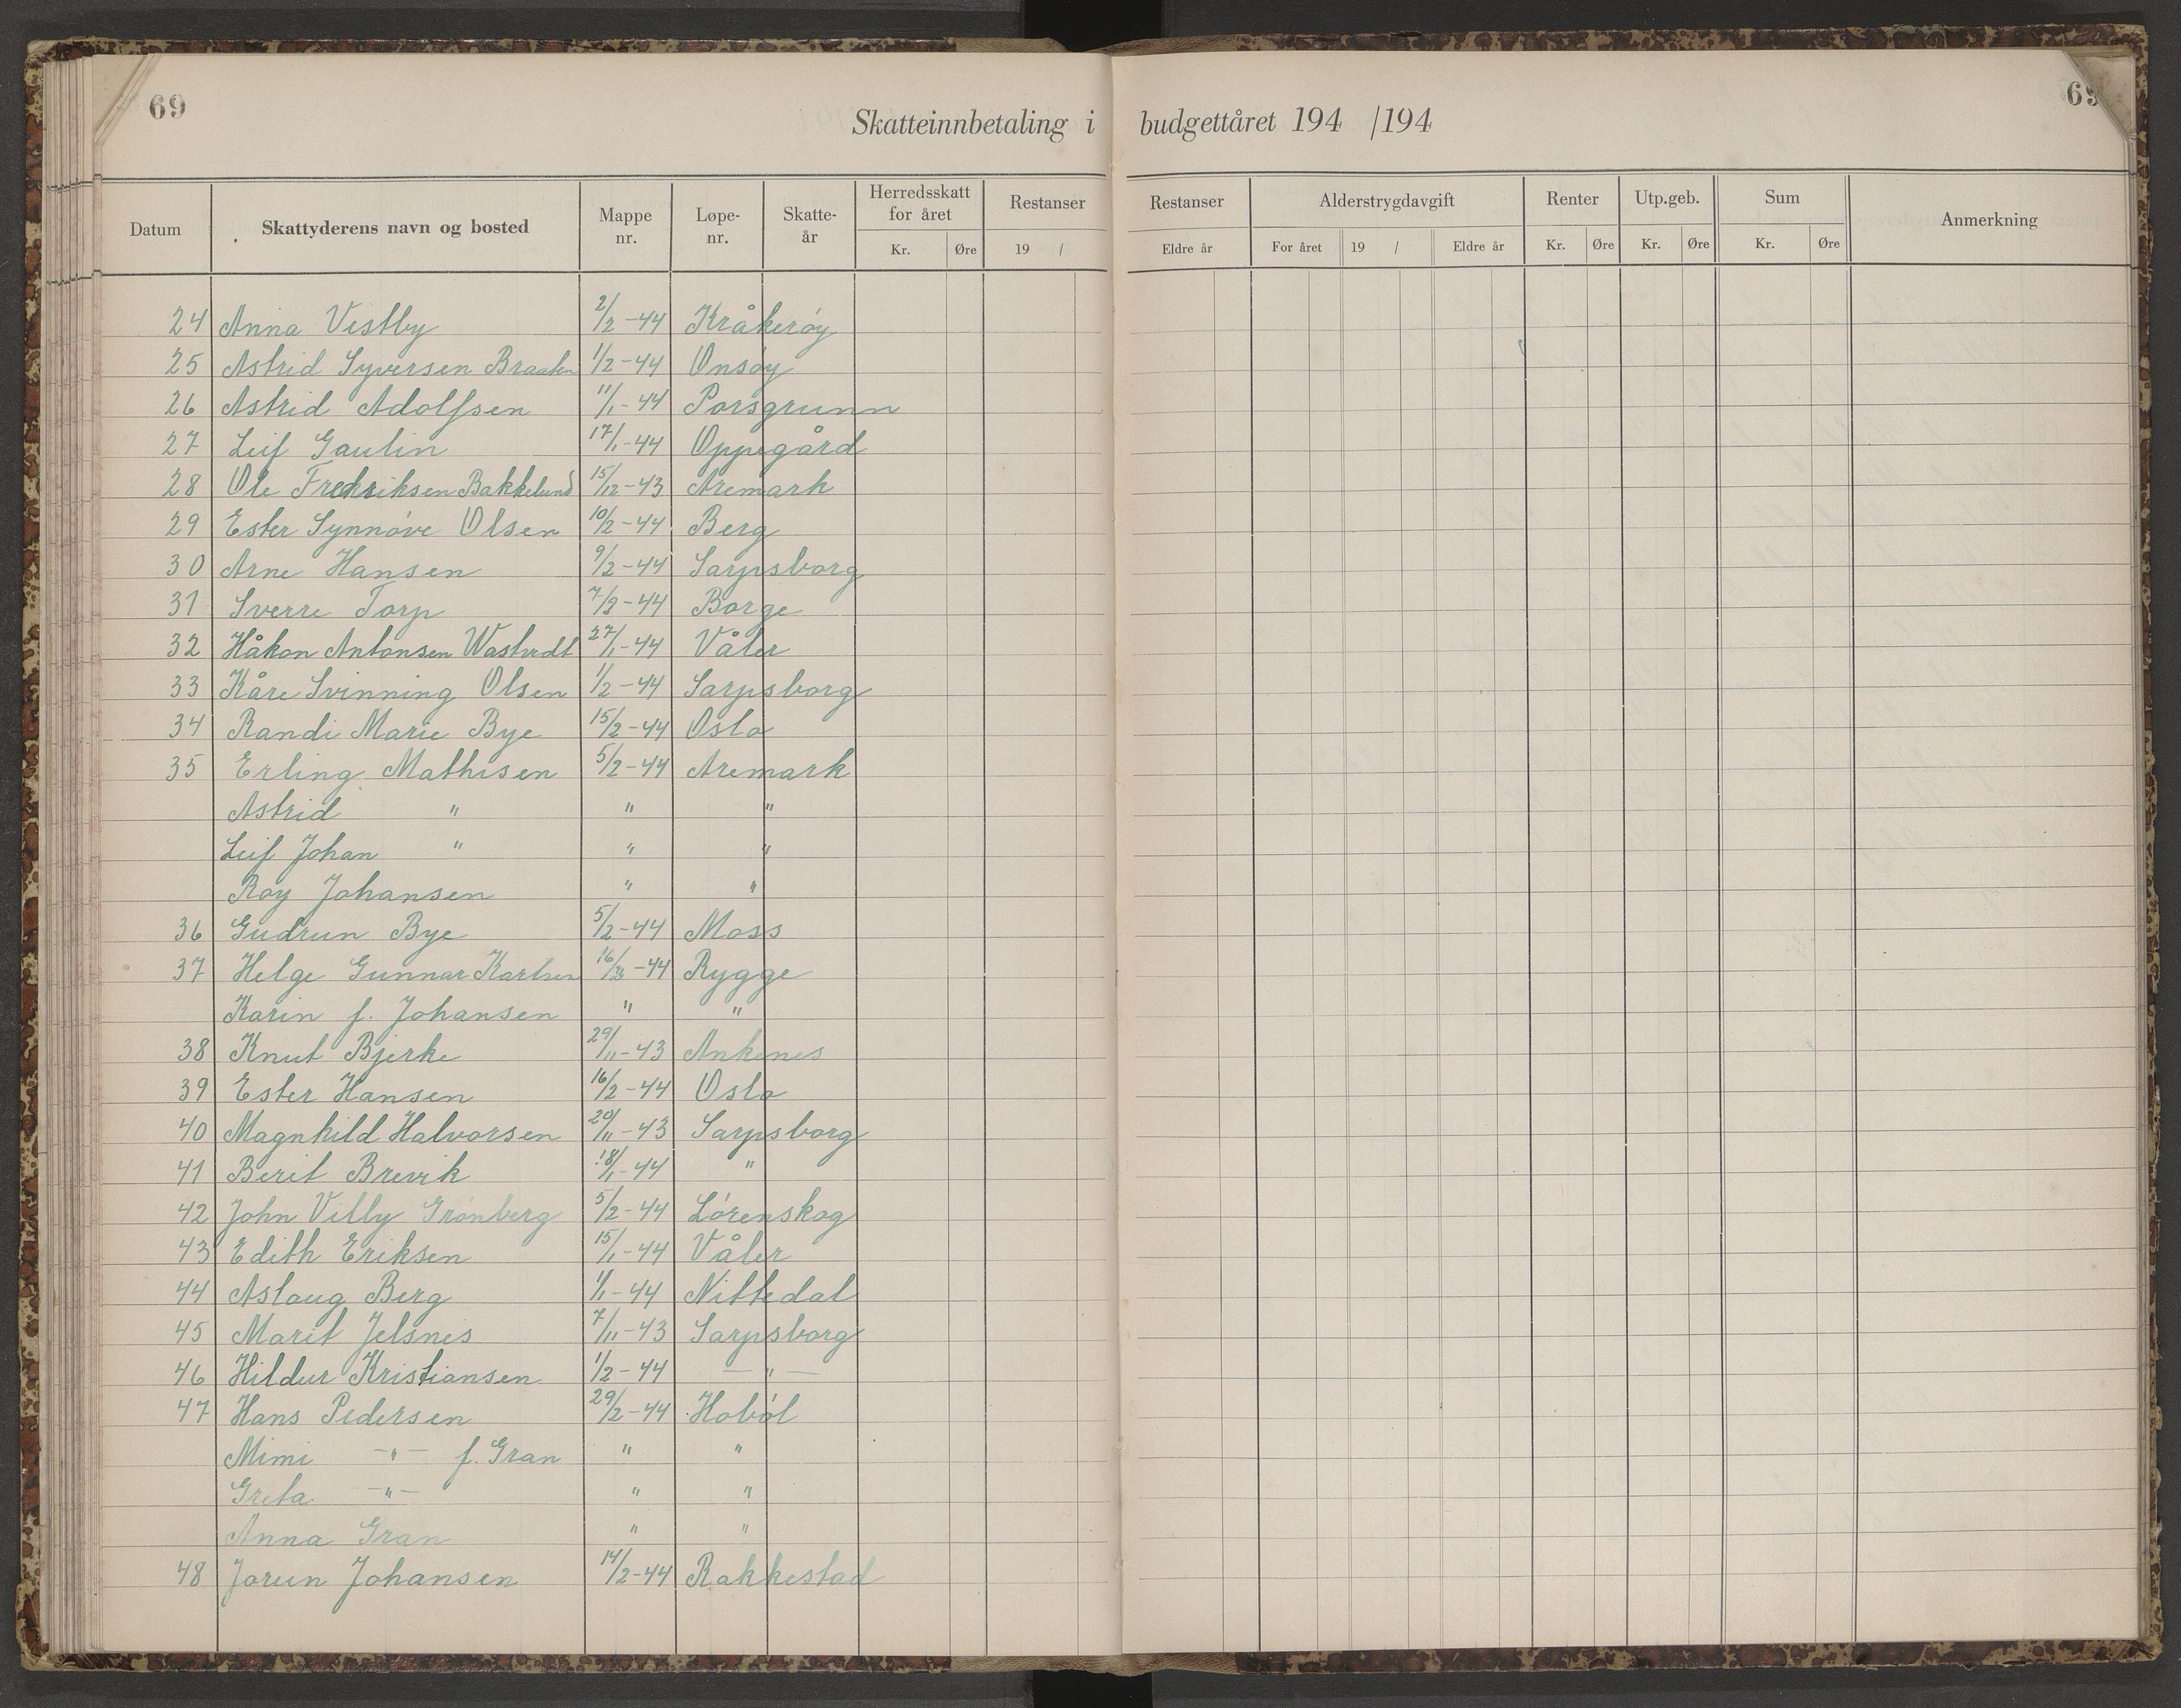 69
69
Skatteinnbetaling i budgettåret 194 /194
Datum Skattyderens navn og bosted Mappe nr. Løpe-nr. Skatte-år Herredsskatt for året Restanser Restanser Alderstrygdavgift Renter Utp.geb. Sum Anmerkning
Kr. Øre 19 / Eldre år For året 19 / Eldre år Kr. Øre Kr. Øre Kr. Øre
24 Anna Vestby 2/2-44 Kråkerøy
25 Astrid Syversen Braaten 1/2-44 Onsøy
26 Astrid Adolfsen 11/1-44 Porsgrunn
27 Leif Gaulin 17/1-44 Oppegård
28 Ole Fredriksen Bakkelund 15/12-43 Aremark
29 Ester Synnøve Olsen 10/2-44 Berg
30 Arne Hansen 9/2-44 Sarpsborg
31 Sverre Torp 7/2-44 Borge
32 Håkon Antonsen 27/1-44 Våler
33 Kåre Svinning Olsen 1/2-44 Sarpsborg
34 Randi Marie Bye 15/2-44 Oslo
35 Erling Mathisen 5/2-44 Aremark
Astrid " " "
Leif Johan " " "
Roy Johansen " "
36 Gudrun Bye 5/2-44 Moss
37 Helge Gunnar Karlsen -44 Rygge
Karin f. Johansen " "
38 Knut Bjerke 29/11-43 Ankenes
39 Ester Hansen 16/2-44 Oslo
40 Magnhild Halvorsen 20/11-43 Sarpsborg
41 Berit Brevik 18/1-44 "
42 John Villy Grønberg 5/2-44 Lørenskog
43 Edith Eriksen 15/1-44 Våler
44 Aslaug Berg 1/1-44 Nittedal
45 Marit Jelsnes 7/11-43 Sarpsborg
46 Hildur Kristiansen 1/2-44 — " —
47 Hans Pedersen 29/2-44 Hobøl
Mimi -"- f. Gran " "
Greta -"- " "
Anna Gran " "
48 Jorun Johansen 14/2-44 Rakkestad